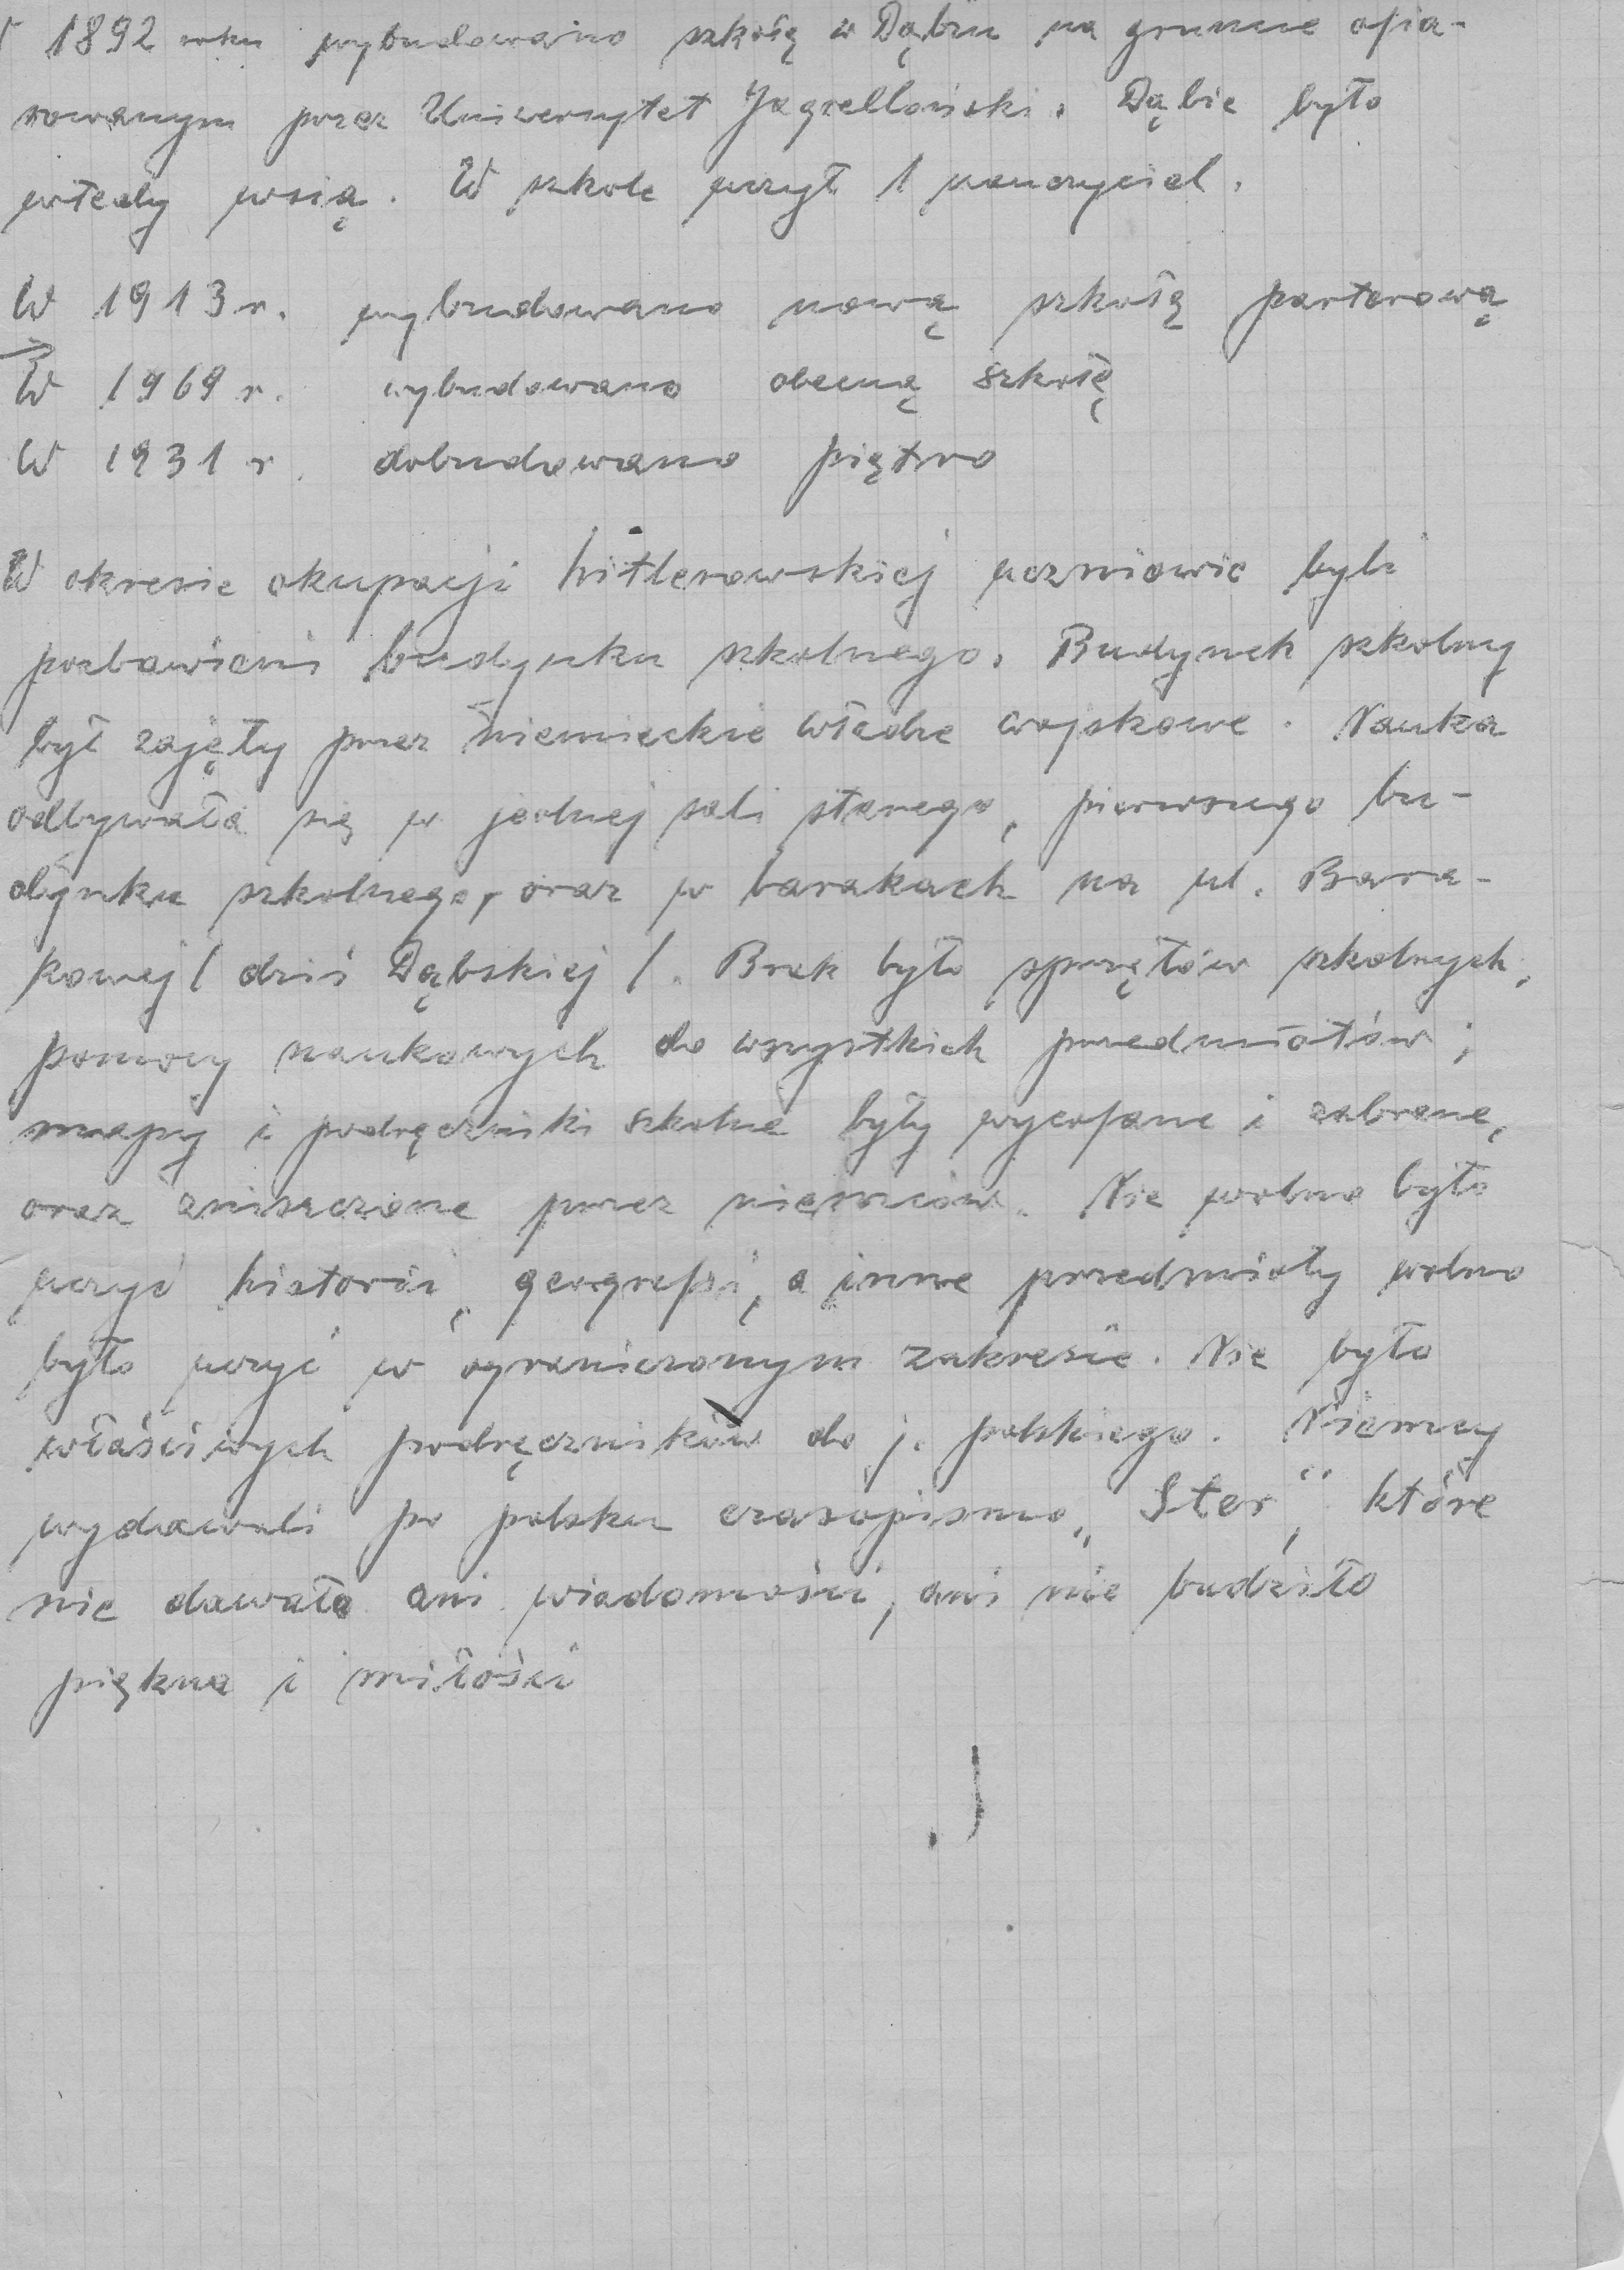 W 1892 roku wybudowano szkołę w Dąbiu na gruncie ofia-
rowanym przez Uniwersytet Jagielloński. Dąbie było
wtedy wsią. W szkole uczył 1 nauczyciel.
W 1913 r. wybudowano nową szkołę parterową
→
W 1969 r. wybudowano obecną szkołę
W 1931 r. dobudowano piętro
W okresie okupacji hitlerowskiej uczniowie byli
pozbawieni budynku szkolnego. Budynek szkolny
był zajęty przez niemieckie władze wojskowe. Nauka
odbywała się w jednej sali starego, pierwszego bu-
dynku szkolnego, oraz w barakach na ul. Bara-
kowej / dziś Dąbskiej /. Brak było sprzętów szkolnych,
pomocy naukowych do wszystkich przedmiotów;
mapy i podręczniki szkolne były wycofane i zabrane,
oraz zniszczone przez niemców. Nie wolno było
uczyć historii, geografii, a inne przedmioty wolno
było uczyć w ograniczonym zakresie. Nie było
właściwych podręczników do j. polskiego. Niemcy
wydawali po polsku czasopismo „Ster", które
nie dawało ani wiadomości, ani nie budziło
piękna i miłości